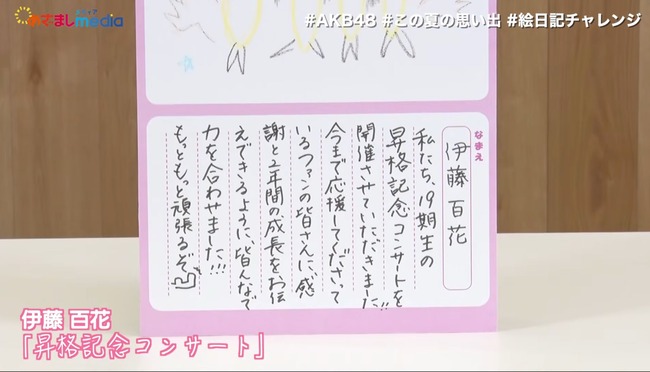 めざましmedia
#AKB48 #この夏の思い出 #絵日記チャレンジ
なまえ
伊藤百花
私たち、19期生の
昇格記念コンサートを
開催させていただきました!!
今まで応援してくださって
いるファンの皆さんに、感
謝と2年間の成長をお伝
えできるように、皆んなで
力を合わせました!!!
もっともっと頑張るぞ
伊藤 百花
「昇格記念コンサート」